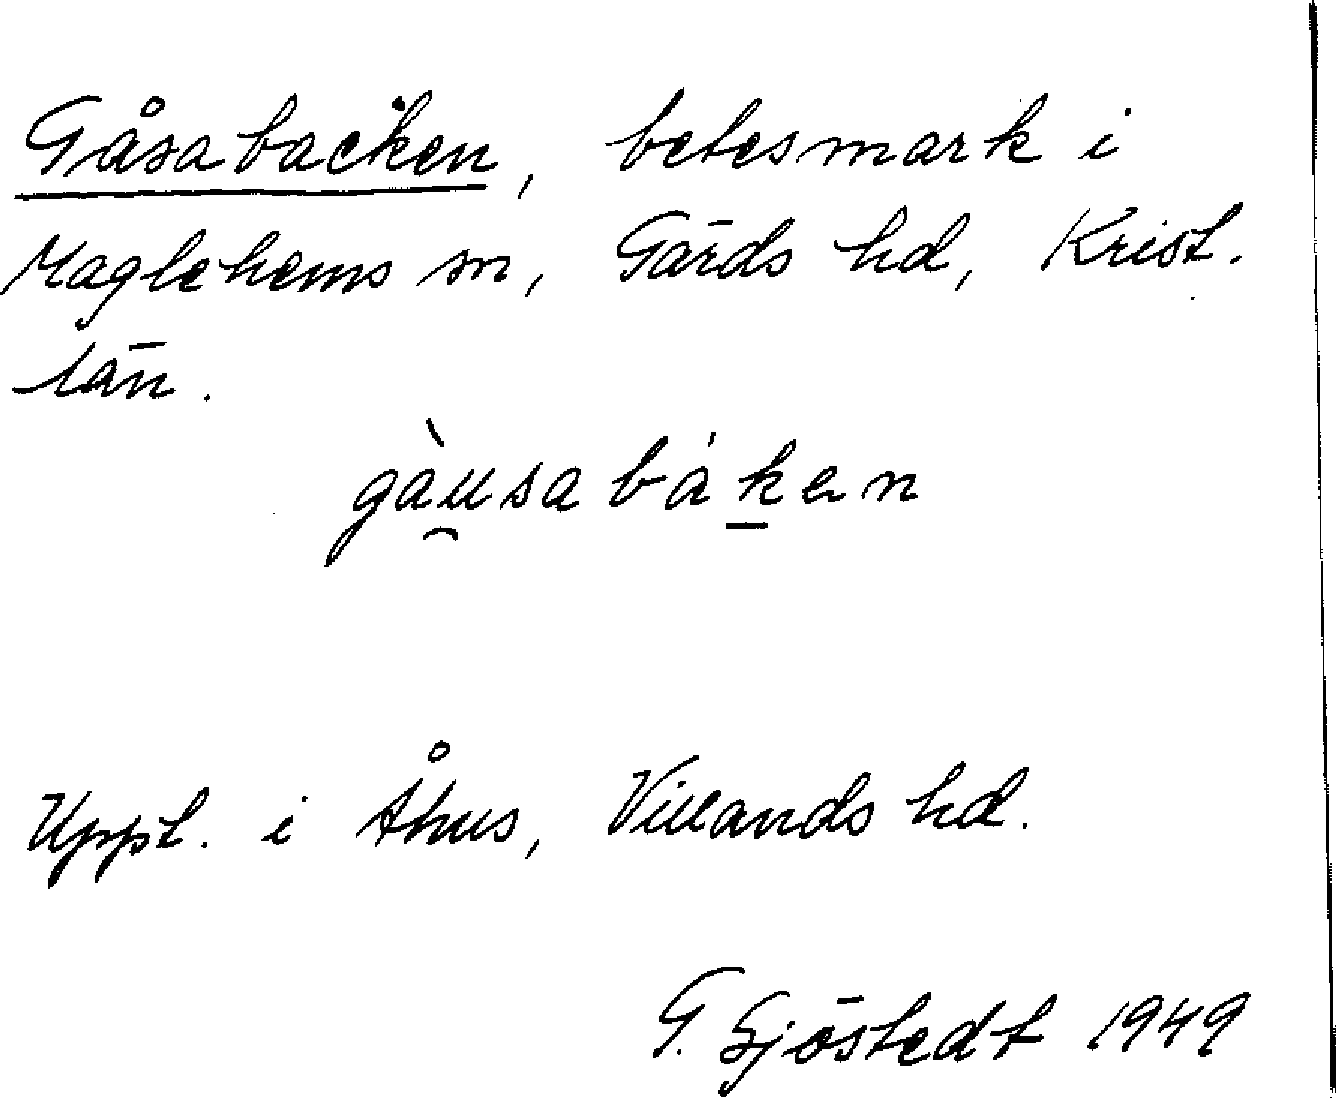 Gåsabacken, betesmark i
Maglehems sn, Gärds hd, Krist.
län.
gàu̯sabáken
Uppt. i Åhus, Villands hd.
G. Sjöstedt 1949